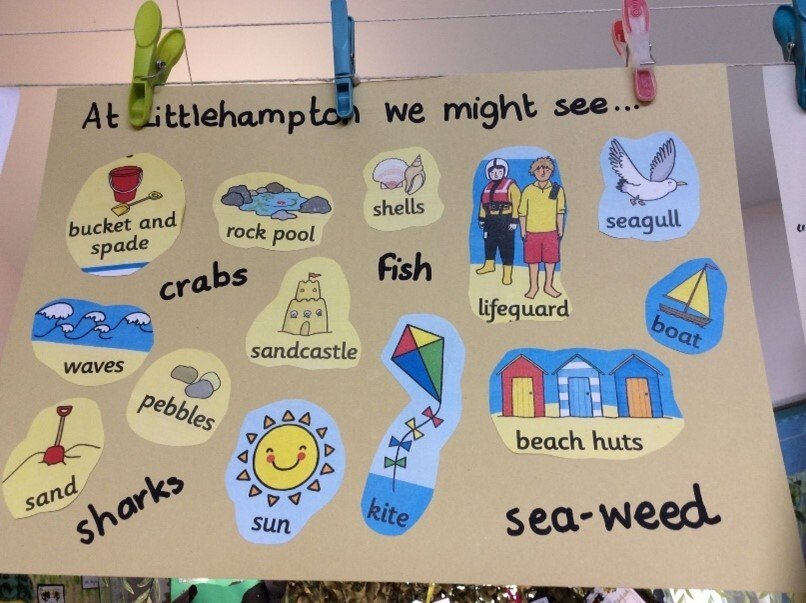 At Littlehampton we might see...
bucket and
spade
rock pool
shells
lifeguard
seagull
crabs
fish
waves
sandcastle
boat
pebbles
beach huts
sand
sharks
sun
kite
sea-weed